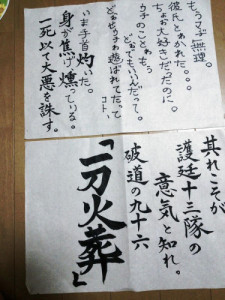 もうマヂ無理。
彼氏とゎかれた。。。
ちょお大好きだったのに、
ゥチのことゎもぅ
どぉでもいぃんだって。
どぉせゥチゎ遊ばれてたってコト、
いま手首灼いた。
身が焦げ燻っている。
一死以て大悪を誅す。
其れこそが
護廷十三隊の
意気と知れ。
破道の九十六
「一刀火葬」